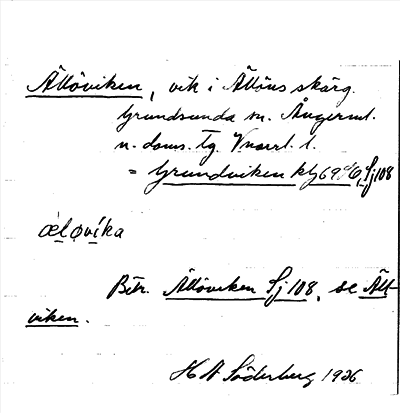 Ällöviken, vik i Ällöns skärg.
Grundsunda sn. Ångerml.
n. doms. tg. Vnorrl. l.
= Grundviken kbl 69 Sj 108
ælǫvika
Betr. Ällöviken Sj 108, se Äll-
viken.
H A Söderberg 1926